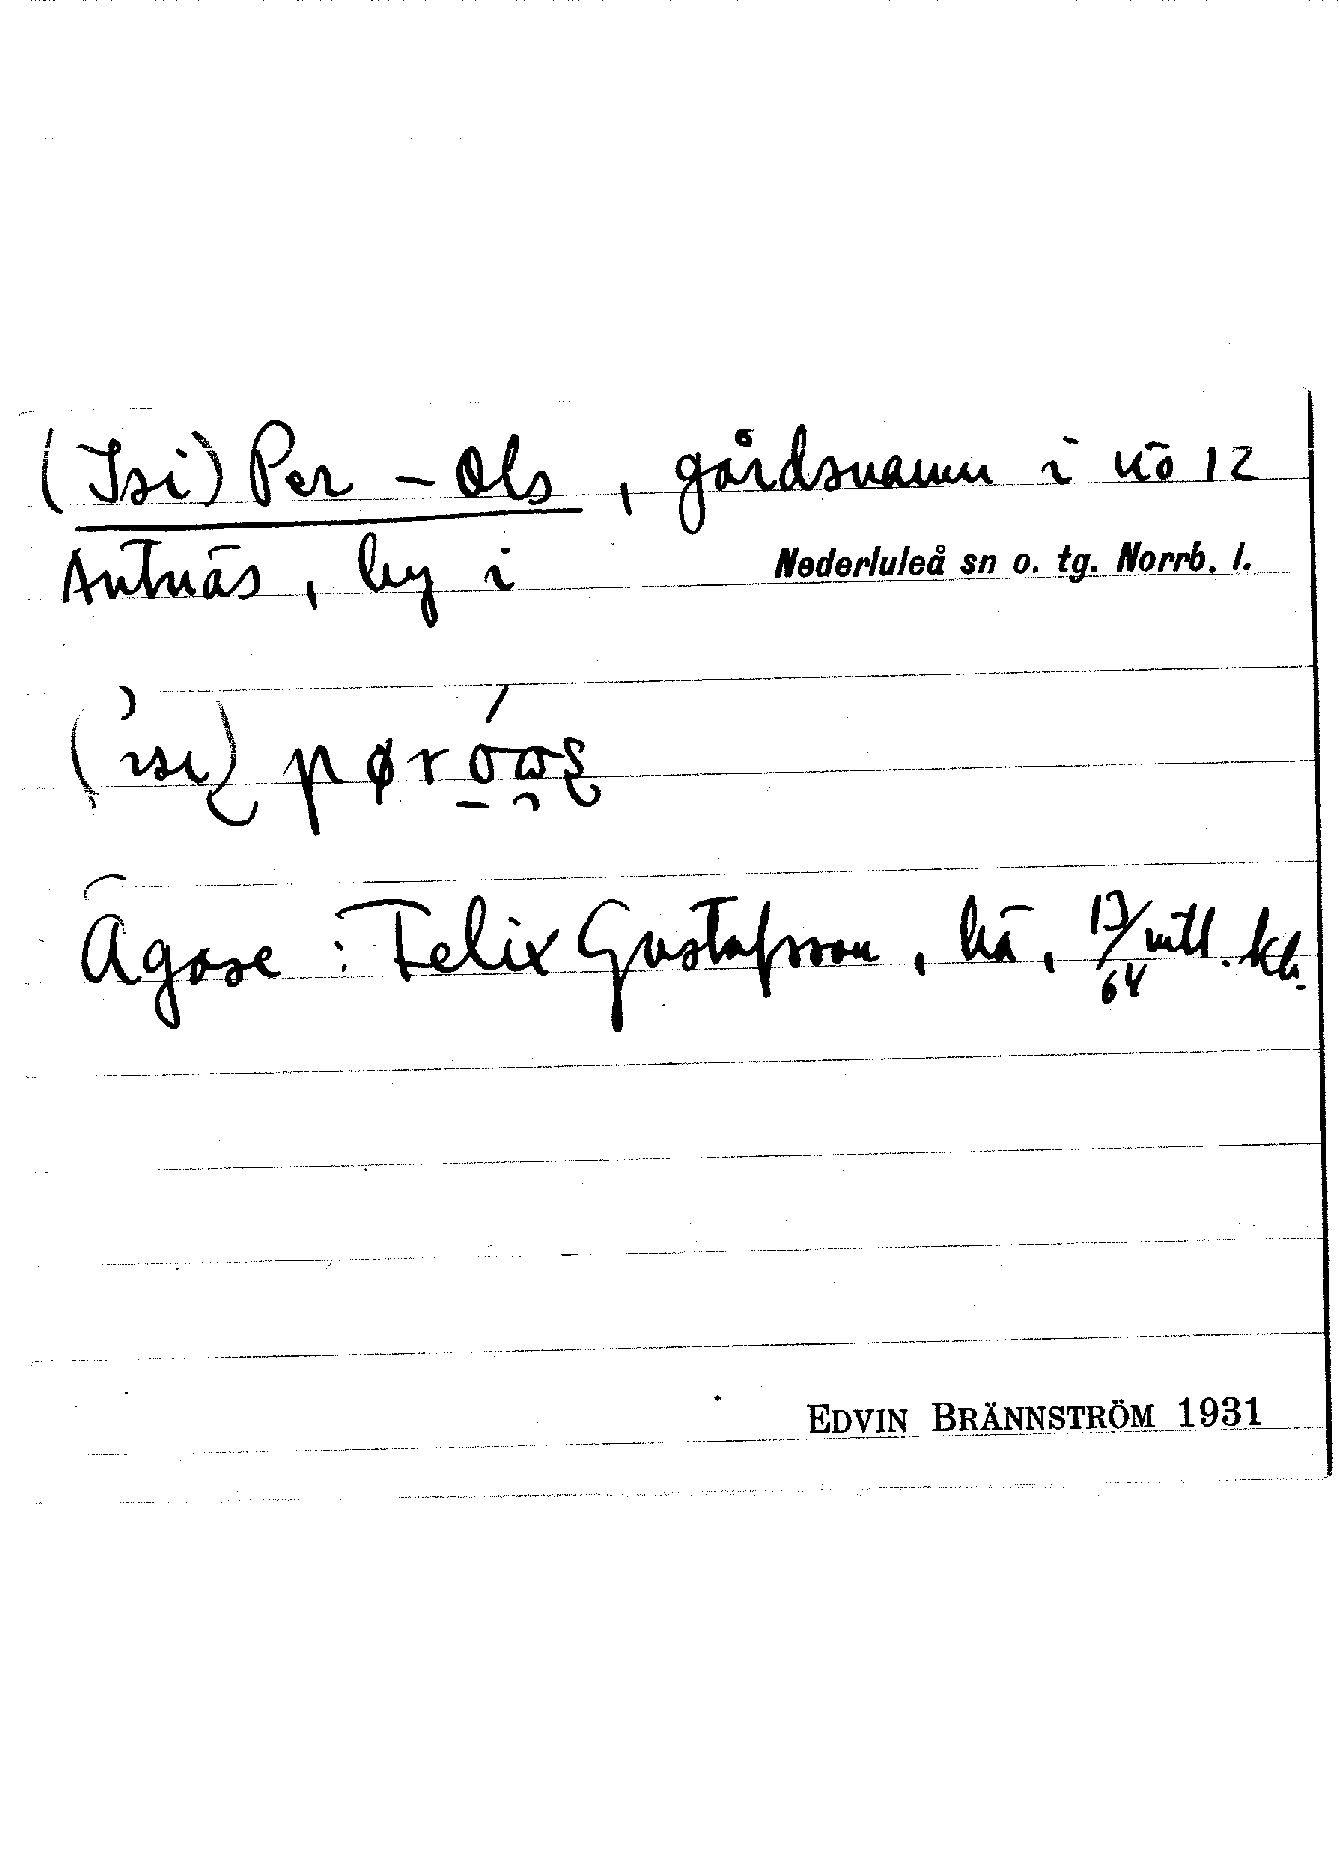 (Isi) Per-Ols, gårdsnamn i no 12
Antnäs, by i Nederluleå sn o. tg. Norrb. l.
Ägare: Felix Gustafsson, hä, 17/64 mtl. kh.
EDVIN BRÄNNSTRÖM 1931